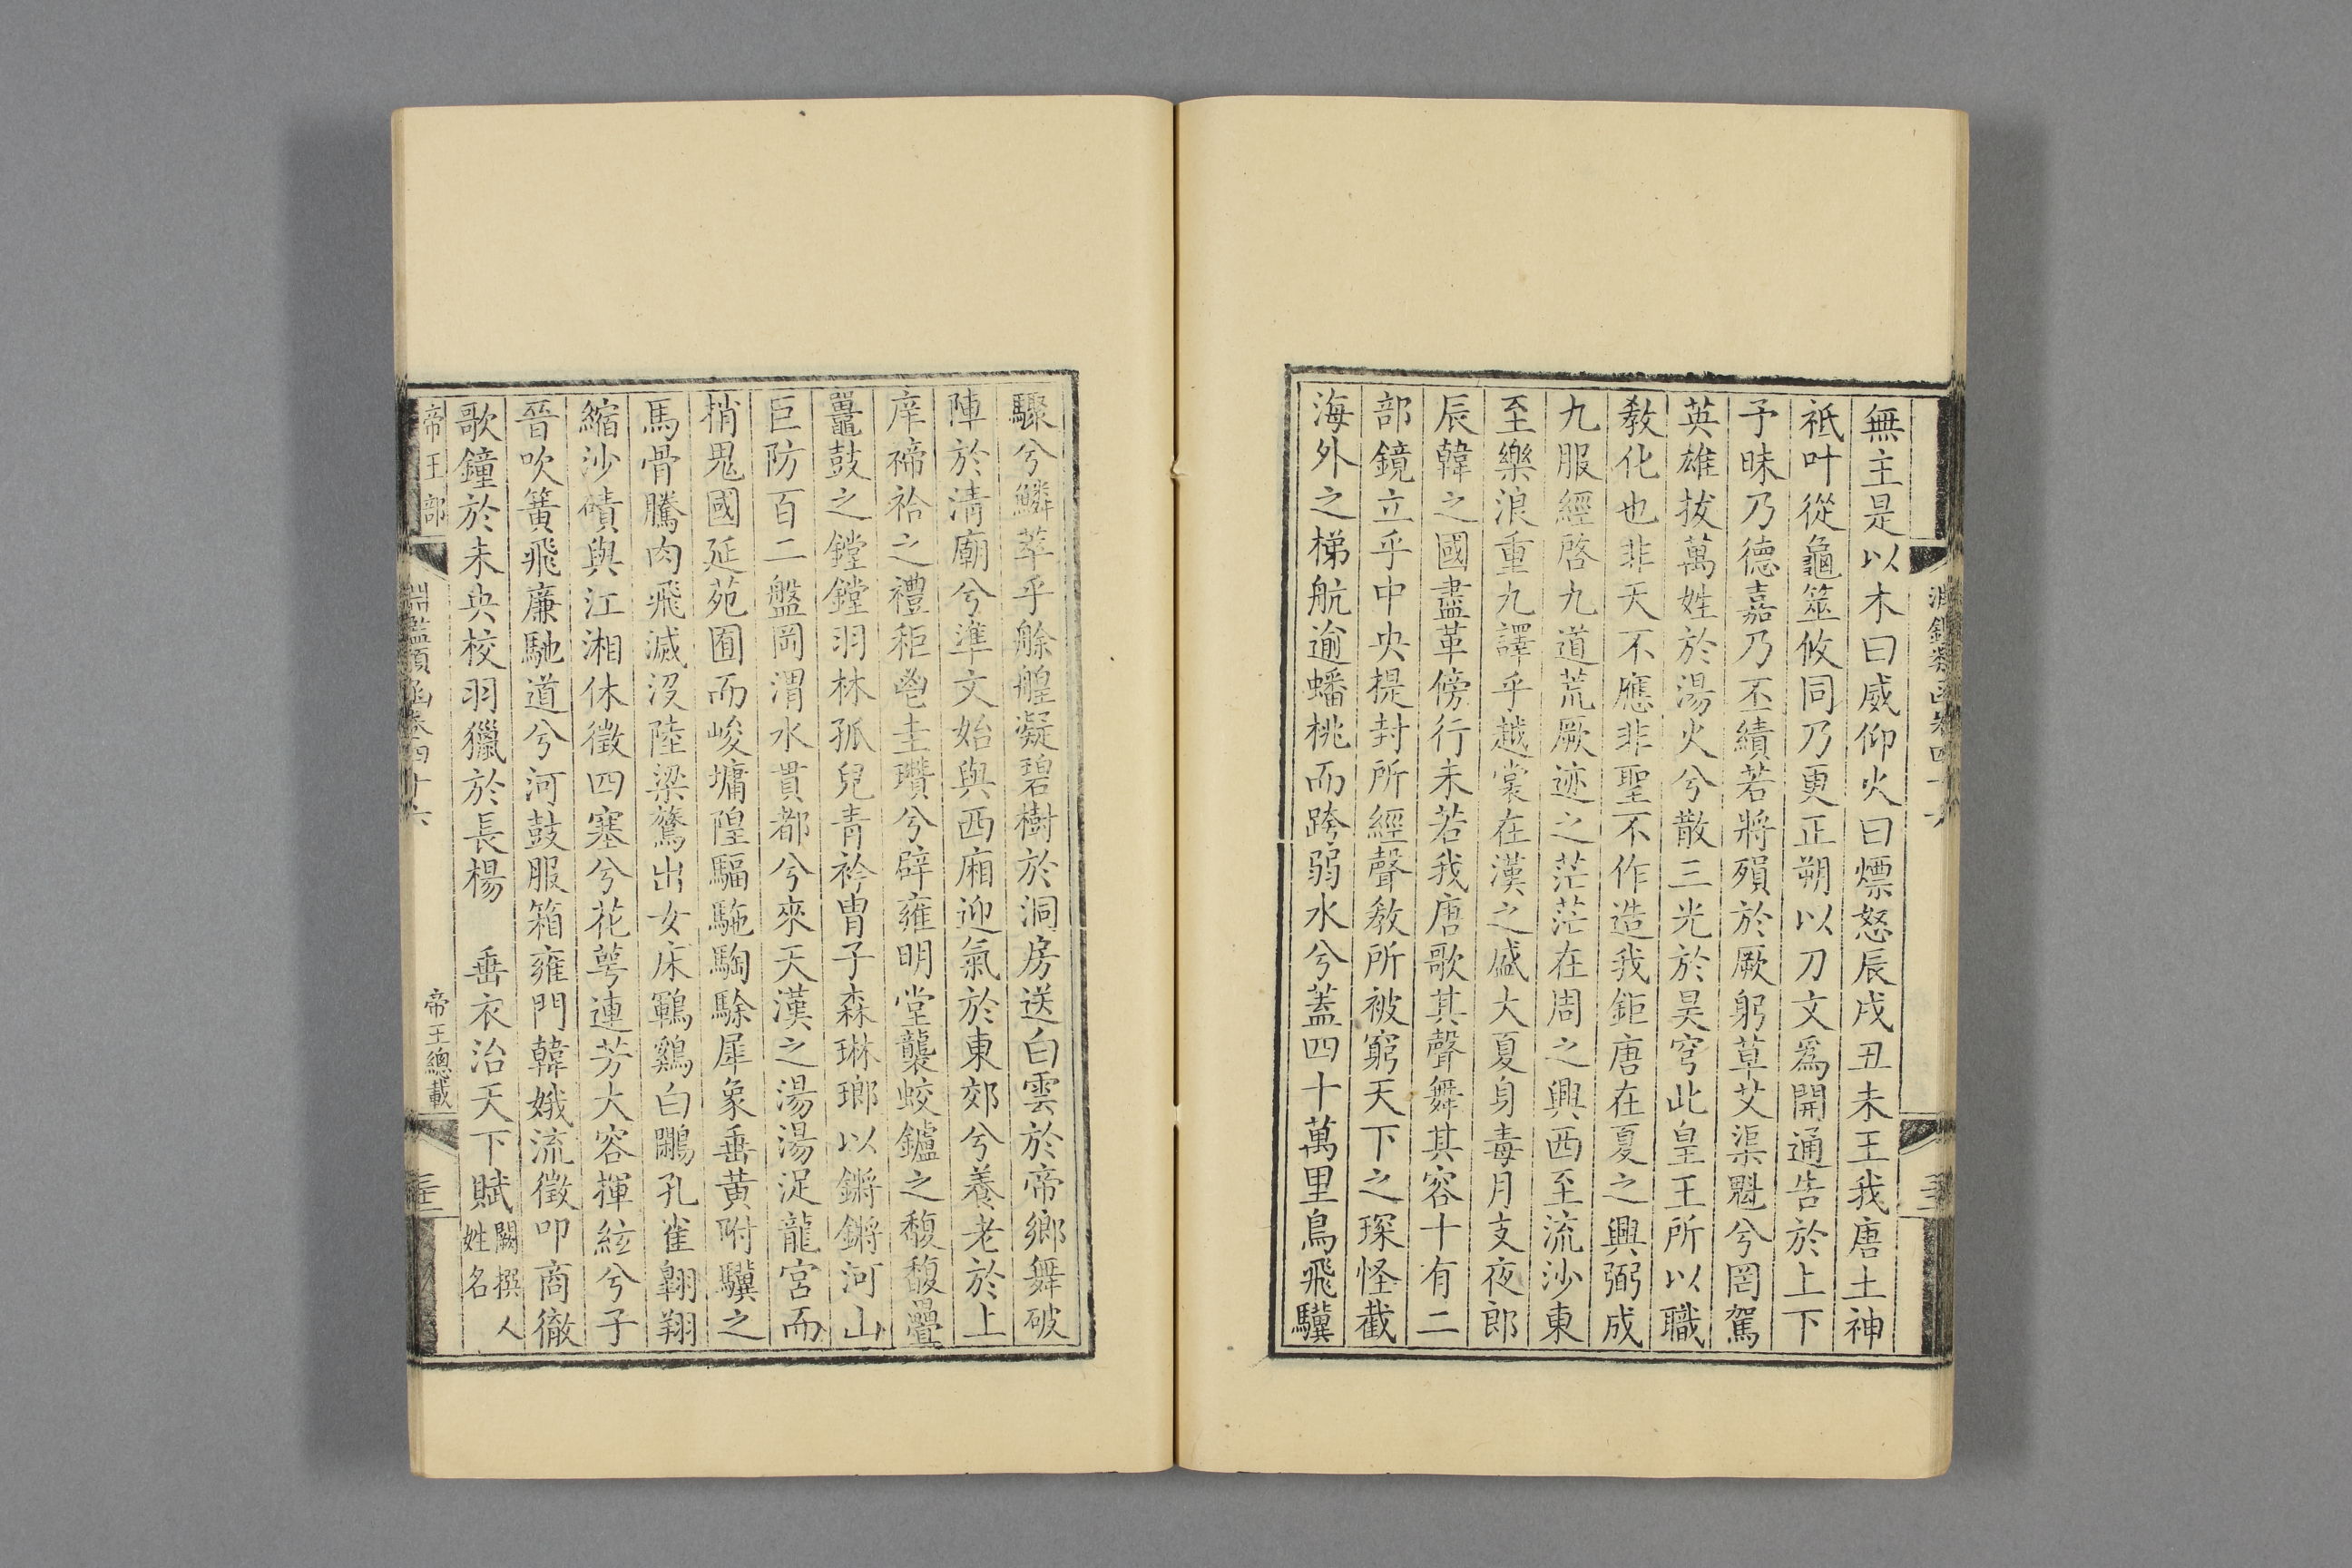 無主是以木曰威仰火曰熛怒辰戌丑未王我唐土神
祗叶從龜筮攸同乃更正朔以刀文爲開通告於上下
予昧乃德嘉乃丕績若將殞於厥躬草艾渠魁兮罔駕
英雄拔萬姓於湯火兮散三光於昊穹此皇王所以職
教化也非天不應非聖不作造我鉅唐在夏之興弼成
九服經啓九道荒厥迹之茫茫在周之興西至流沙東
至樂浪重九譯乎越裳在漢之盛大夏身毒月支夜郎
辰韓之國盡革傍行未若我唐歌其聲舞其容十有二
部鏡立乎中央提封所經聲敎所被窮天下之琛怪截
海外之梯航逾蟠桃而跨弱水兮蓋四十萬里鳥飛驥
驟兮鱗萃乎艅艎凝碧樹於洞房送白雲於帝鄉舞破
陣於清廟兮準文始與西廂迎氣於東郊兮養老於上
庠禘祫之禮秬鬯圭瓚兮辟雍明堂襲蛟鑪之馥馥疊
鼉鼓之鏜鏜羽林孤兒青衿胄子森琳瑯以鏘鏘河山
巨防百二盤岡渭水貫都兮來天漢之湯湯浞龍宮而
梢鬼國延苑囿而峻墉隍騙駞騊駼犀象垂黃附驥之
馬骨騰肉飛滅沒陸梁鶩出女床鸐鷄白鷴孔雀翺翔
縮沙磧與江湘休徵四塞兮花萼連芳大容揮絃兮子
晉吹簧飛廉馳道兮河鼓服箱雍門韓娥流徵叩商徹
歌鐘於未央校羽獵於長楊　垂衣治天下賦闕撰人姓名
帝王部　淵鑑類函卷四十六　帝王總載